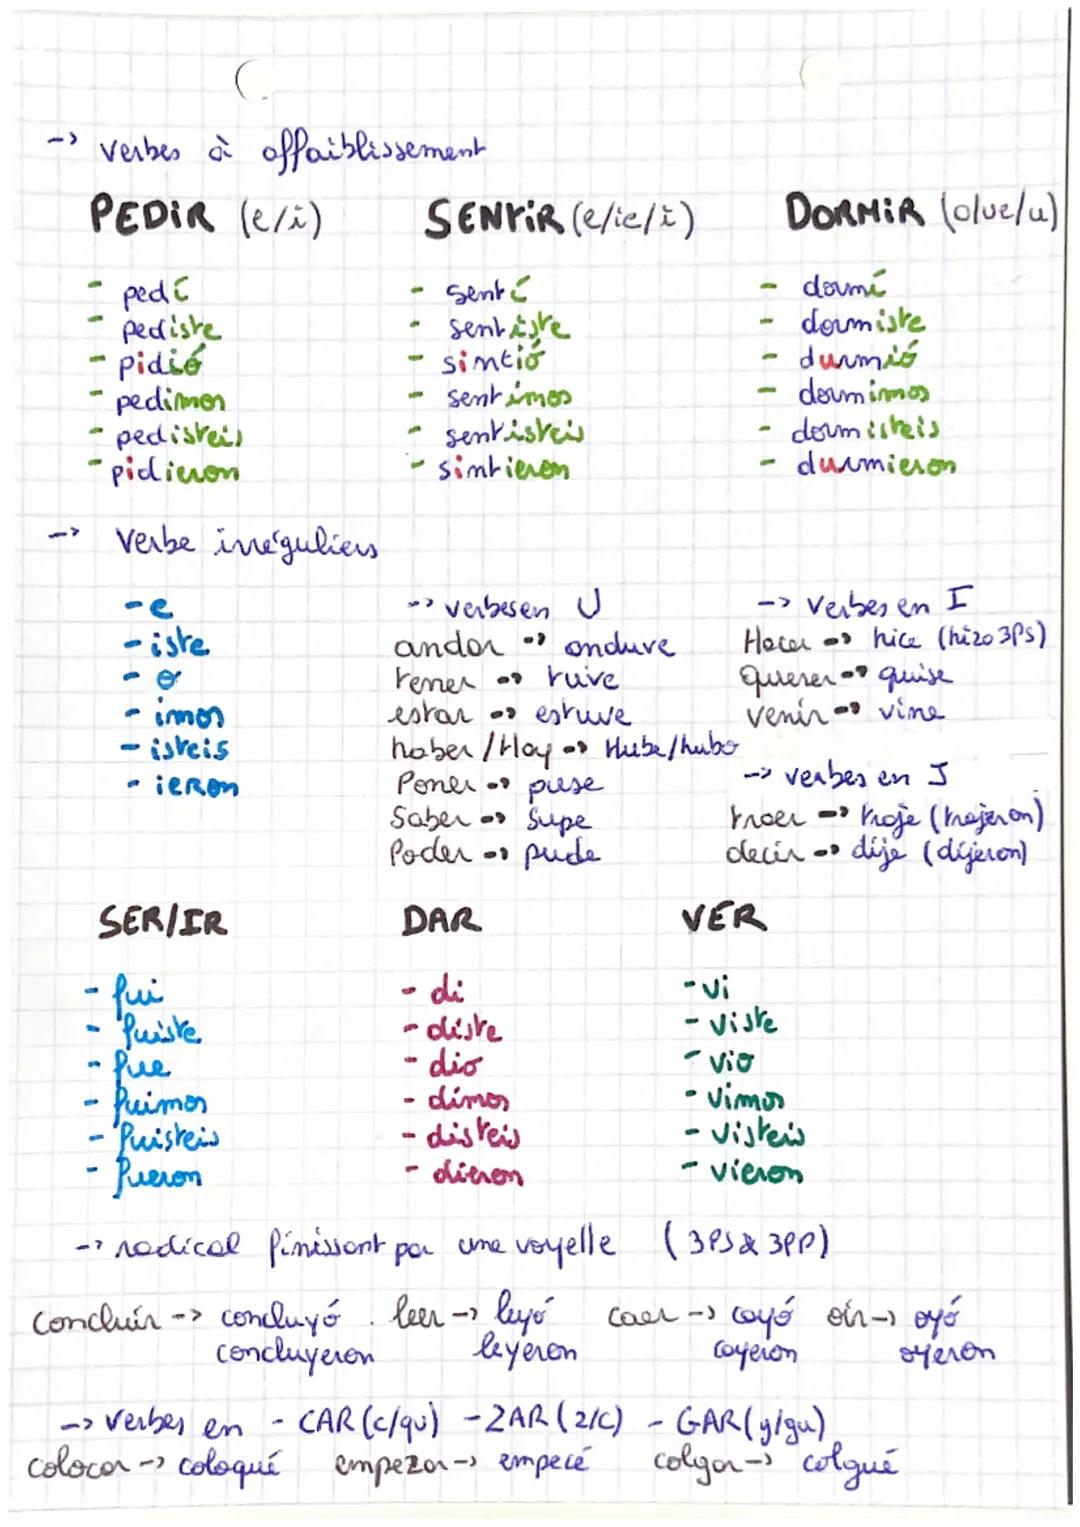 -> verbes à affaiblissement
PEDIR (e/i) SENTIR (e/ie/i) DORMIR (o/ue/u)
- pedí - sentí - dormí
- pediste - sentiste - dormiste
- pidió - sintió - durmió
- pedimos - sentimos - dormimos
- pedisteis - sentisteis - dormisteis
- pidieron - sintieron - durmieron
-> Verbe irréguliers
- e -> verbes en U -> Verbes en I
- iste andar -> anduve Hacer -> hice (hizo 3PS)
- o tener -> tuve Querer -> quise
- imos estar -> estuve venir -> vine
- isteis haber/Hay -> Hube/hubo
- ieron Poner -> puse -> verbes en J
Saber -> Supe traer -> traje (trajeron)
Poder -> pude decir -> dije (dijeron)
SER/IR DAR VER
- fui - di - vi
- fuiste - diste - viste
- fue - dio - vio
- fuimos - dimos - vimos
- fuisteis - disteis - visteis
- fueron - dieron - vieron
-> radical finissant par une voyelle (3PS & 3PP)
Concluir -> concluyó . leer -> leyó caer -> cayó oír -> oyó
concluyeron leyeron cayeron oyeron
-> Verbes en - CAR (c/qu) - ZAR (z/c) - GAR (g/gu)
colocar -> coloqué empezar -> empecé colgar -> colgué